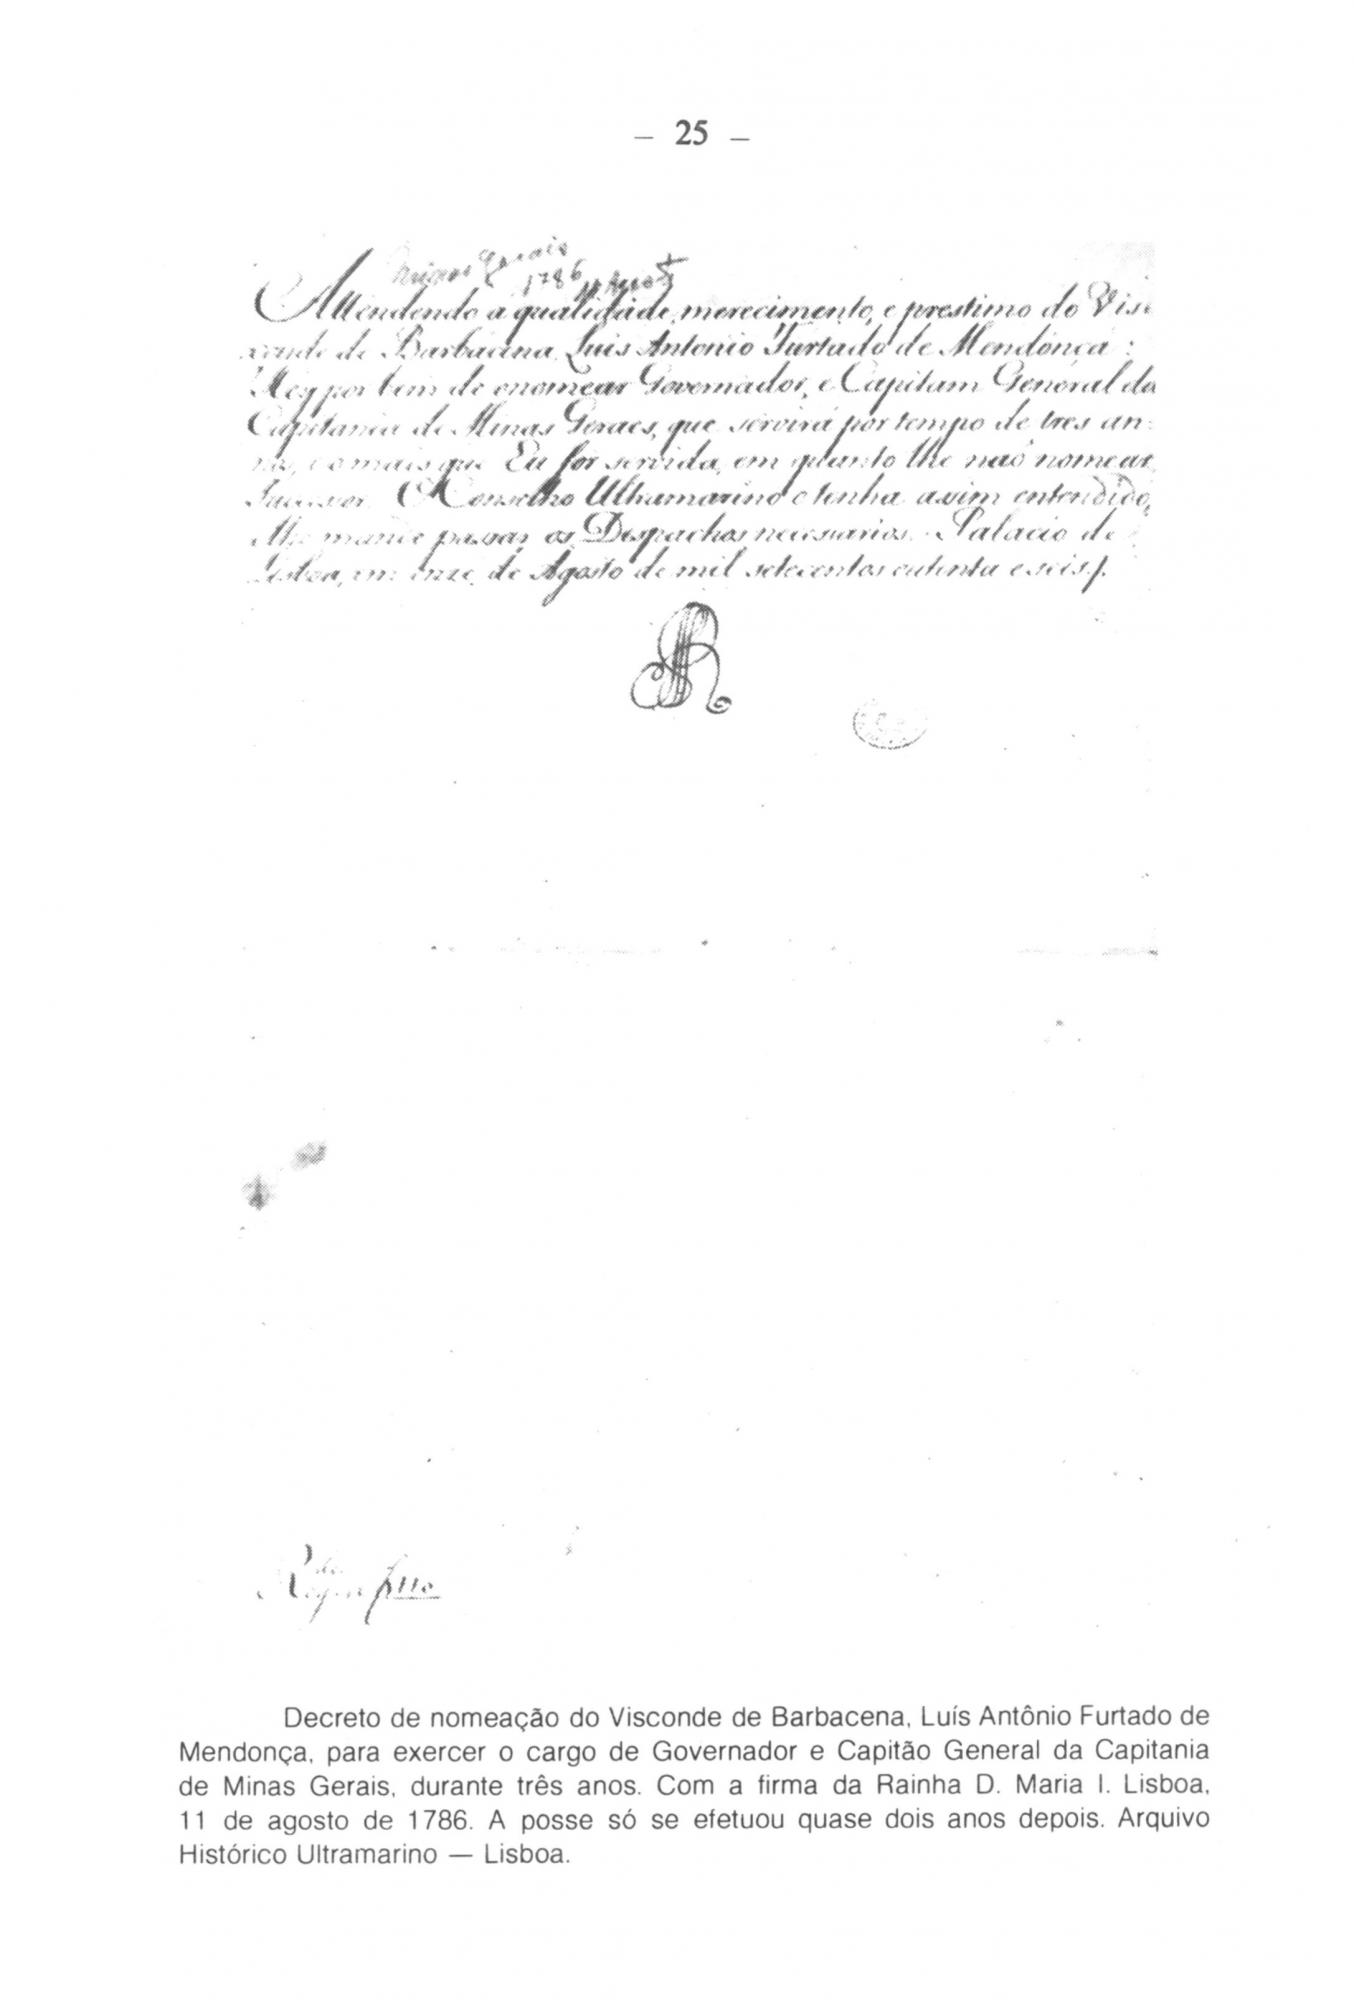 – 25 –
Minas Gerais
1786 11 Agost
Attendendo a qualidade, merecimento, e prestimo do Vis
conde de Barbacena Luis Antonio Furtado de Mendonça:
Hey por bem de o nomear Governador, e Capitam General da
Capitania de Minas Geraes, que servirá por tempo de tres an-
nos, e o mais que Eu for servida, em quanto lhe naõ nomear
Sucessor. O Conselho Ultramarino o tenha assim entendido,
e lhe mande passar os Despachos necessarios. Palacio de
Lisboa, em onze de Agosto de mil setecentos outenta e seis.
Decreto de nomeação do Visconde de Barbacena, Luís Antônio Furtado de
Mendonça, para exercer o cargo de Governador e Capitão General da Capitania
de Minas Gerais, durante três anos. Com a firma da Rainha D. Maria I. Lisboa,
11 de agosto de 1786. A posse só se efetuou quase dois anos depois. Arquivo
Histórico Ultramarino — Lisboa.